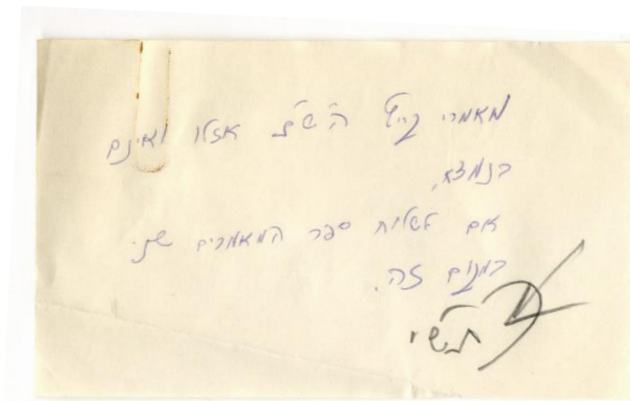 מאמרי קיץ ה'ש"ת אזלו ואינם
בנמצא,
אם לשלוח ספר המאמרים
במקום זה.
תש"י